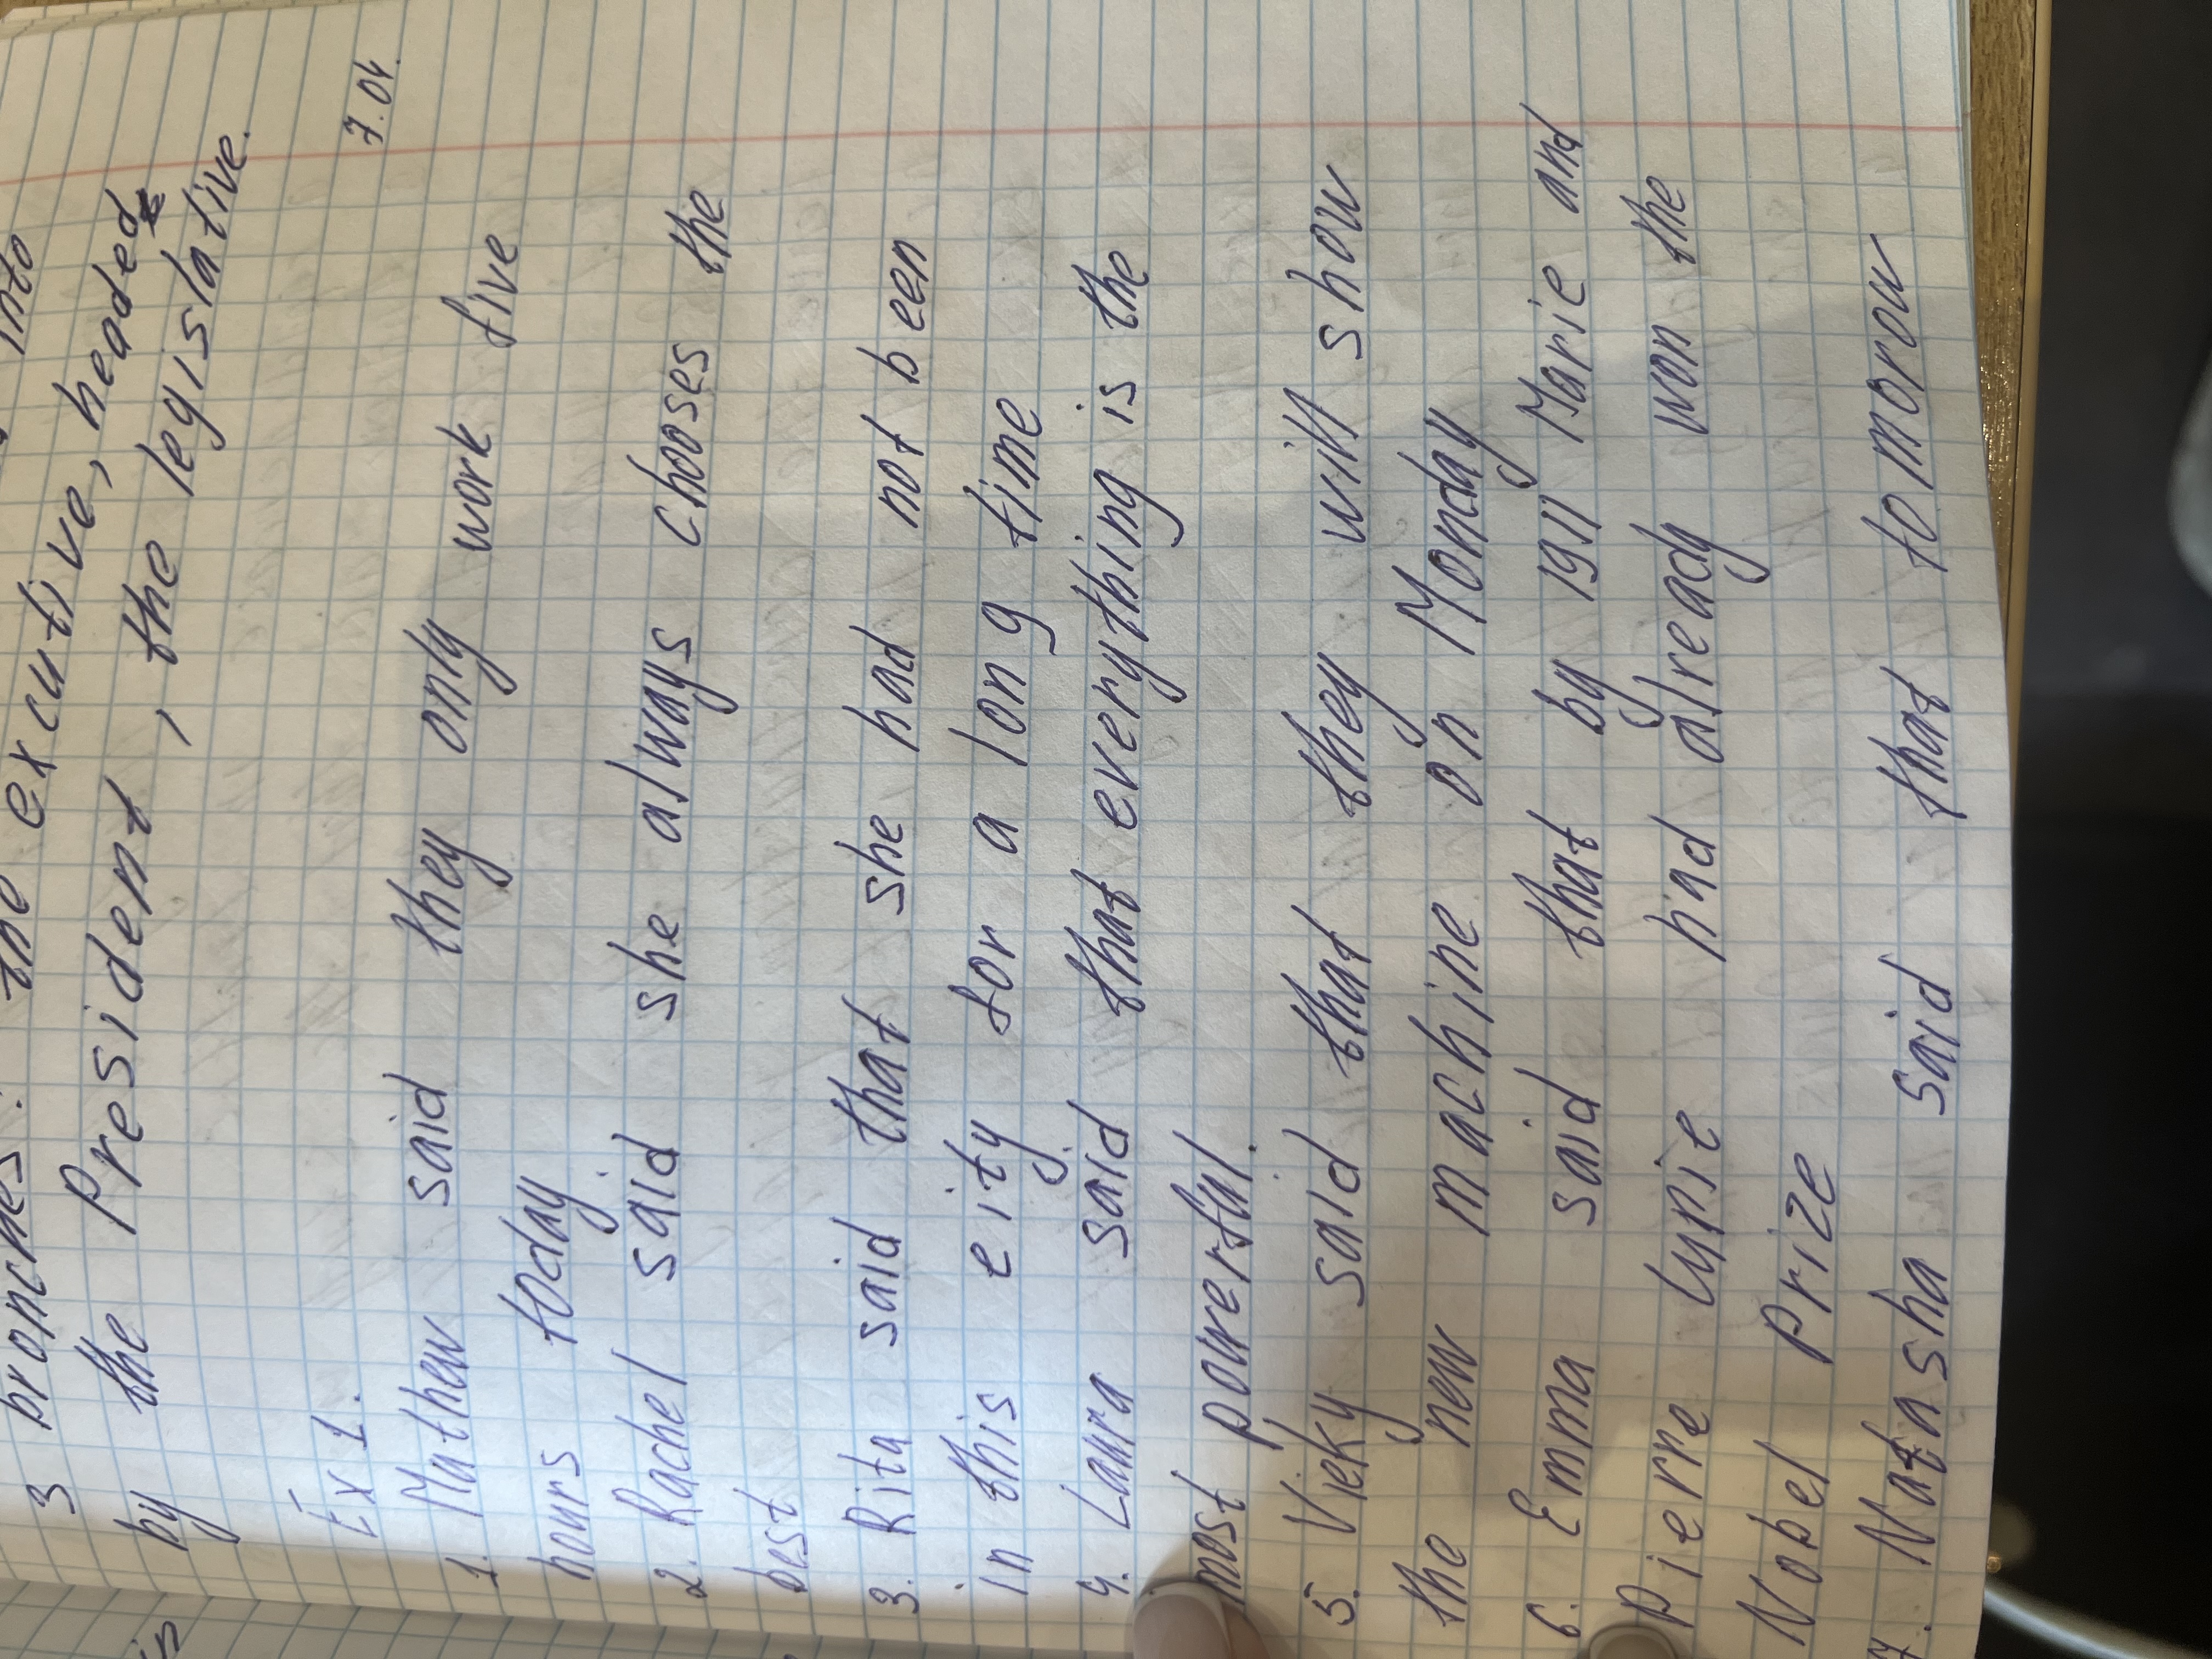 into
3 branches: the excutive, headed
by the President, the legislative.
in
7.04.
Ex 1.
1. Mathew said they only work five
hours today
2. Rachel said she always chooses the
best
3. Rita said that she had not been
in this city for a long time
4. Laura said that everything is the
most powerful.
5. Vicky said that they will show
the new machine on Monday
6. Emma said that by 1911 Marie and
Pierre Curie had already won the
Nobel Prize
7. Natasha said that tomorow